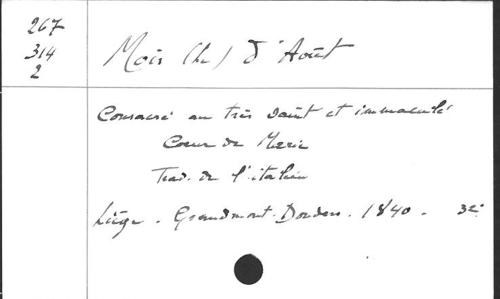 267
314
2
Mois (Le) d'Août
Consacré au très saint et immaculé
Coeur de Marie
Trad. de l'italien
Liège. Grandmont-Donders. 1840. 32°